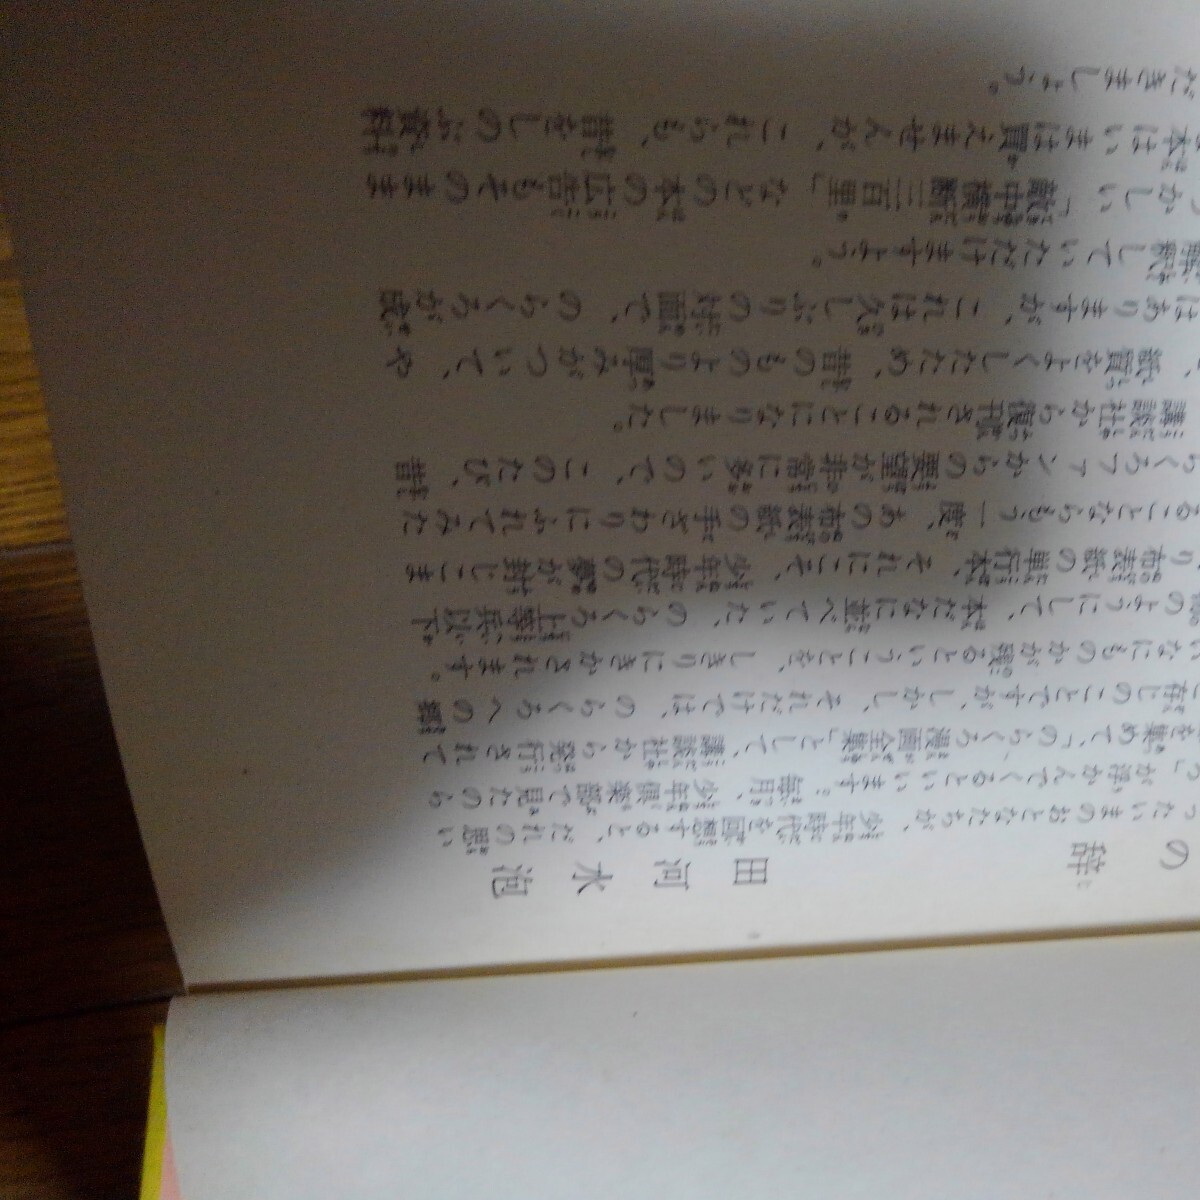 の辞
田河水泡
ったいまのおとなたちが、少年時代を回想すると、だれの思い
が浮かんでくるといいます。毎月、少年倶楽部で見たのら
を集めて、「のらくろ漫画全集」として、講談社から発行されて
存じのことですが、しかし、それだけでは、のらくろへの郷
いなにものかが残るということを、しきりにきかされます。
のようにして、本だなに並べていた、のらくろ上等兵以下
り布表紙の単行本、それにこそ、少年時代の夢が封じこま
ることならもう一度、あの布表紙の手ざわりにふれてみた
らくろファンからの要望が非常に多いので、このたび、昔
講談社から復刊されることになりました。
、紙質をよくしたため、昔のものより厚みがついて、や
はありますが、これは久しぶりの対面で、のらくろが成
解釈していただけますよう。
つかしい「敵中横断三百里」などの本の広告もそのまま
本はいまは買えませんが、これらも、昔をしのぶ資料
だきましょう。